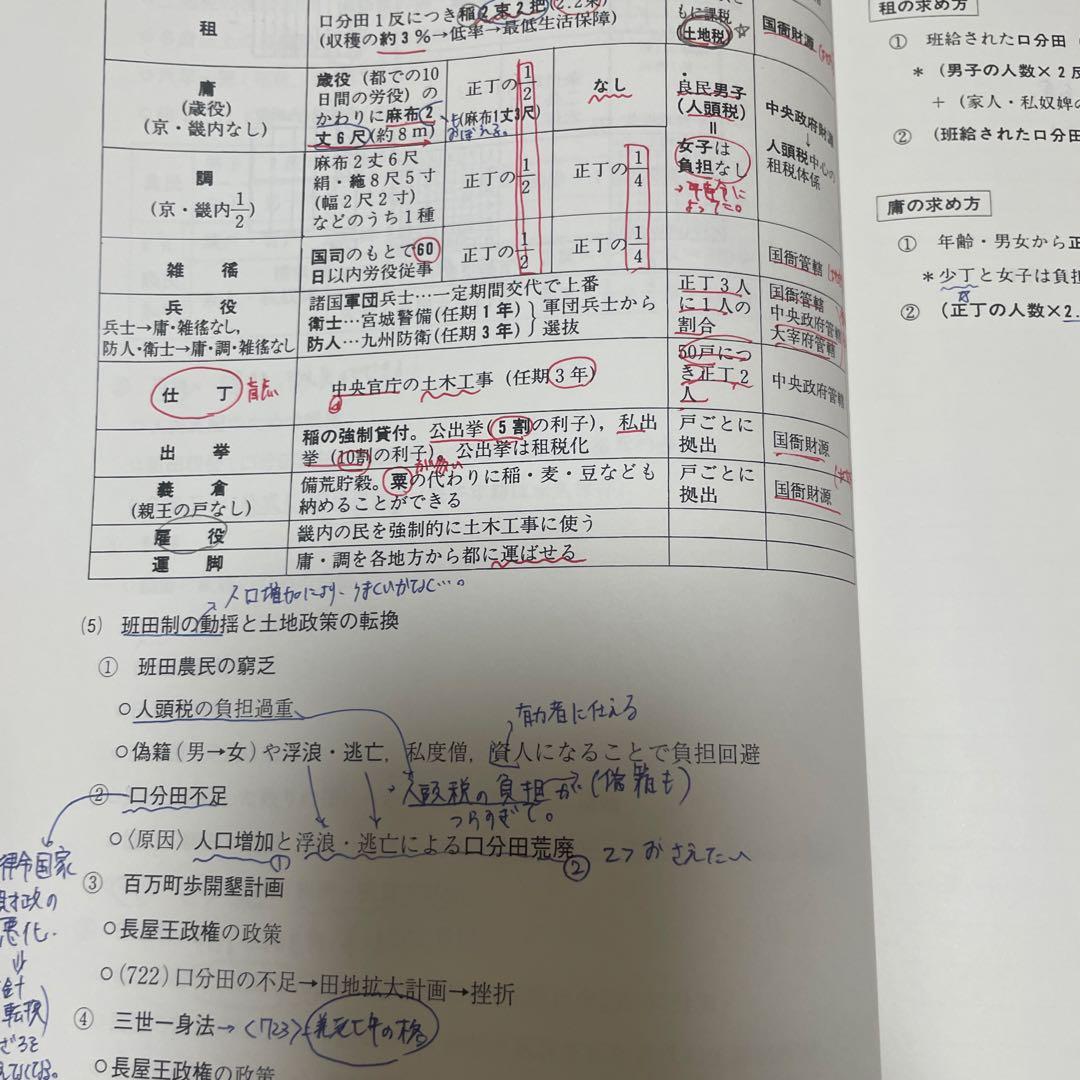 租
口分田1反につき稲2束2把(2.2束)
(収穫の約3%→低率→最低生活保障)
もに課税
土地税 ☆
国衙財源
庸
(歳役)
(京・畿内なし)
歳役(都での10
日間の労役)の
かわりに麻布(2
丈6尺)(約8m)
正丁の1/2
(麻布1丈3尺)
おぼえる。
なし
良民男子
(人頭税)
=
女子は
負担なし
中央政府財源
↓
人頭税中心の
租税体系
調
(京・畿内1/2)
麻布2丈6尺
絹・絁8尺5寸
(幅2尺2寸)
などのうち1種
正丁の1/2
正丁の1/4
雑徭
国司のもとで60
日以内労役従事
正丁の1/2
正丁の1/4
国衙管轄
兵役
兵士→庸・雑徭なし,
防人・衛士→庸・調・雑徭なし
諸国軍団兵士…一定期間交代で上番
衛士…宮城警備(任期1年)
防人…九州防衛(任期3年)
}軍団兵士から
選抜
正丁3人
に1人の
割合
国衙管轄
中央政府管轄
大宰府管轄
仕丁
中央官庁の土木工事(任期3年)
50戸につ
き正丁2
人
中央政府管轄
出挙
稲の強制貸付。公出挙(5割の利子),私出
挙(10割の利子)。公出挙は租税化
戸ごとに
拠出
国衙財源
義倉
(親王の戸なし)
が多い
備荒貯穀。粟の代わりに稲・麦・豆なども
納めることができる
戸ごとに
拠出
国衙財源
雇役
畿内の民を強制的に土木工事に使う
運脚
庸・調を各地方から都に運ばせる
人口増加により、うまくいかなく…。
(5) 班田制の動揺と土地政策の転換
① 班田農民の窮乏
○人頭税の負担過重
有力者に仕える
○偽籍(男→女)や浮浪・逃亡,私度僧,資人になることで負担回避
・人頭税の負担が(偽籍も)
つらすぎて。
② 口分田不足
○〈原因〉人口増加と浮浪・逃亡による口分田荒廃
① ② 2つおさえたい
律令国家
財政の
悪化
⇓
転換
③ 百万町歩開墾計画
○長屋王政権の政策
○(722)口分田の不足→田地拡大計画→挫折
④ 三世一身法→〈723〉
○長屋王政権の政策
租の求め方
① 班給された口分田
*(男子の人数×2反
+(家人・私奴婢の
②(班給された口分田
庸の求め方
① 年齢・男女から正
*少丁と女子は負担
②(正丁の人数×2.